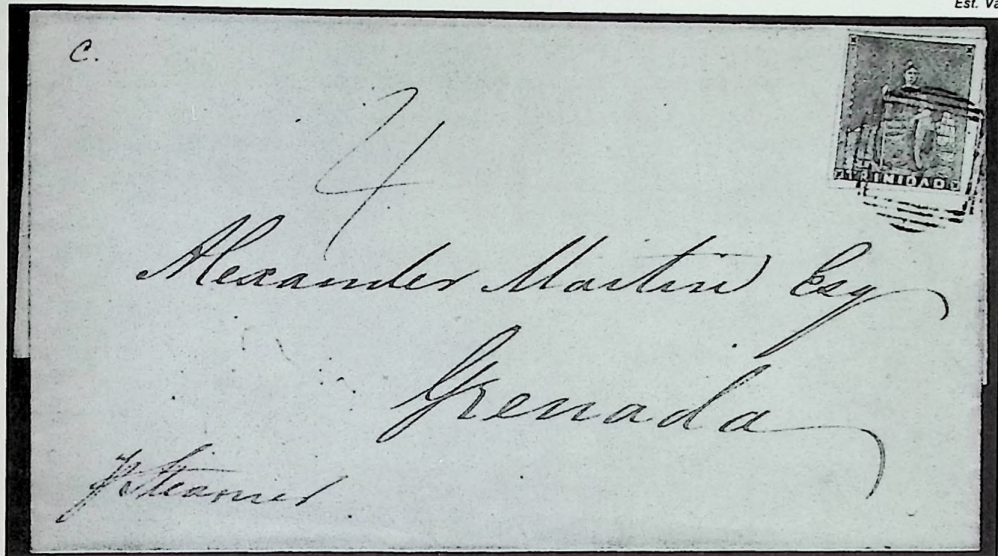 Est. Va
C.
4
TRINIDAD
Alexander Martin Esq
Grenada
p Steamer